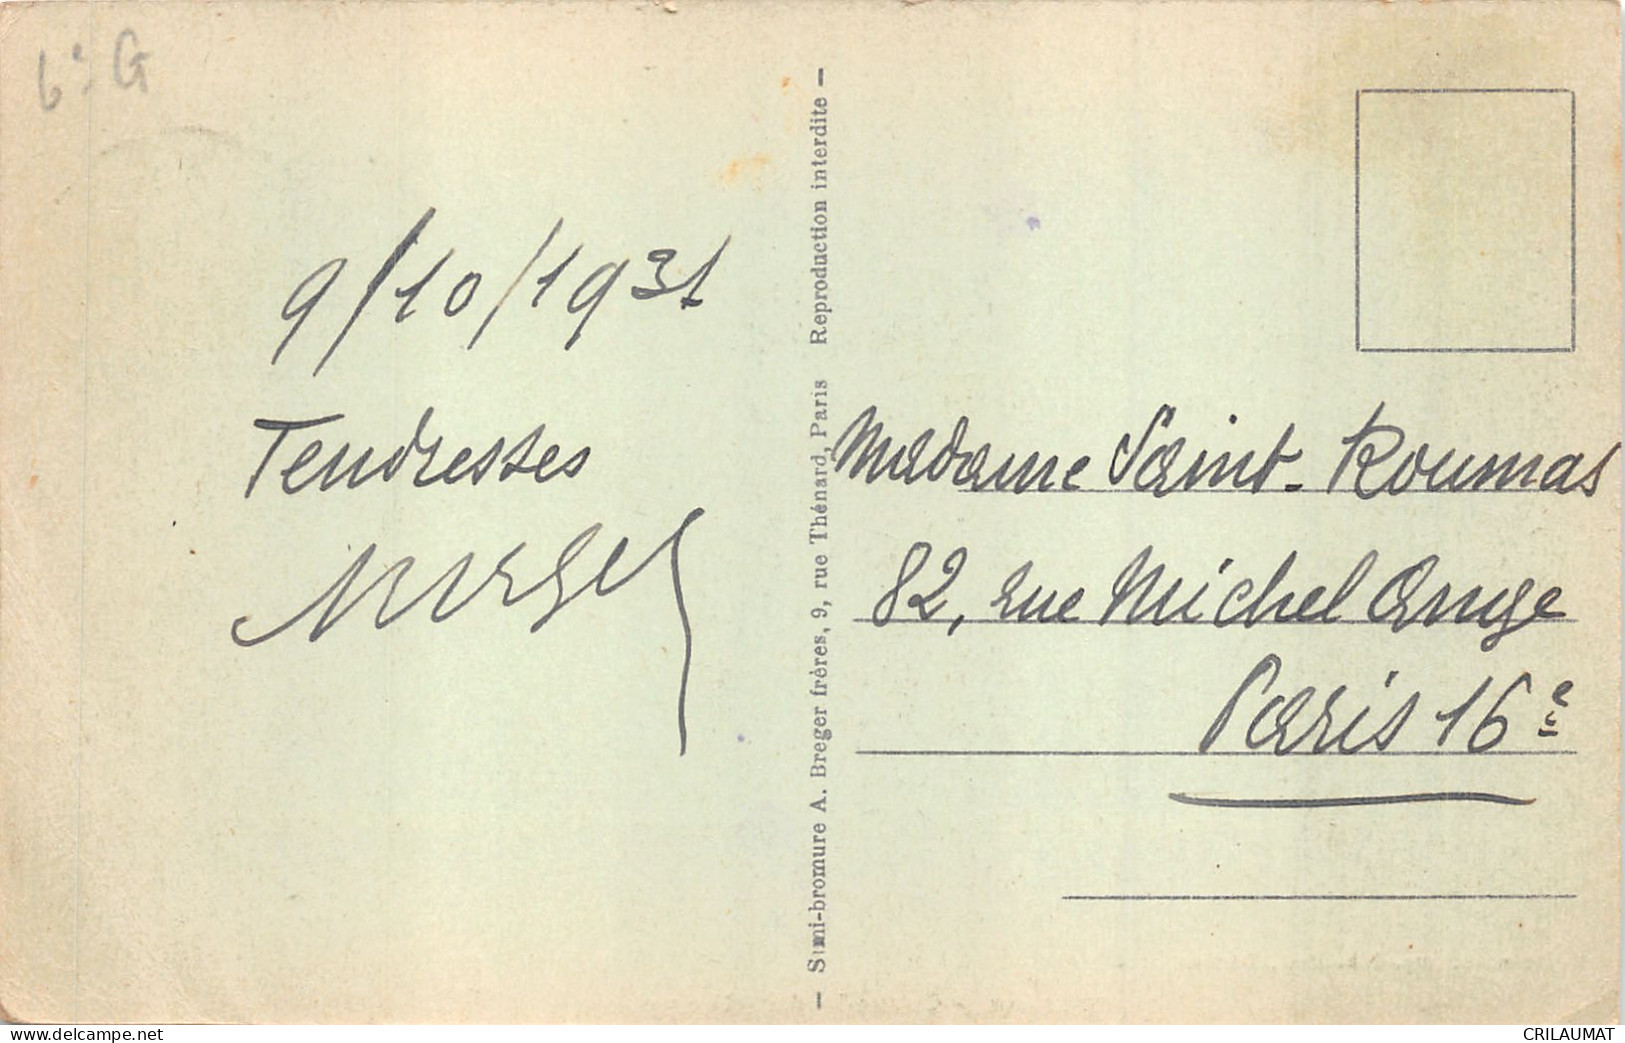 6e G
9/10/1931
Tendresses
— Semi-bromure A. Breger frères, 9, rue Thénard, Paris Reproduction interdite —
Madame Saint-Roumas
82, rue Michel Ange
Paris 16e
delcampe.net
CRILAUMAT